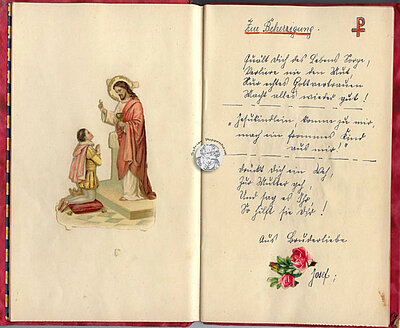 Zur Beherzigung.
Quält Dich des Lebens Sorge,
Verliere nie den Mut,
Nur festes Gottvertrauen
Macht alles wieder gut!
"Jesukindlein komme zu mir,
mach ein frommes Kind
aus mir!"
Drückt Dich ein Weh,
Zur Mutter geh,
Und sag es Ihr
So hilft sie Dir!
Aus Bruderliebe
Josef;